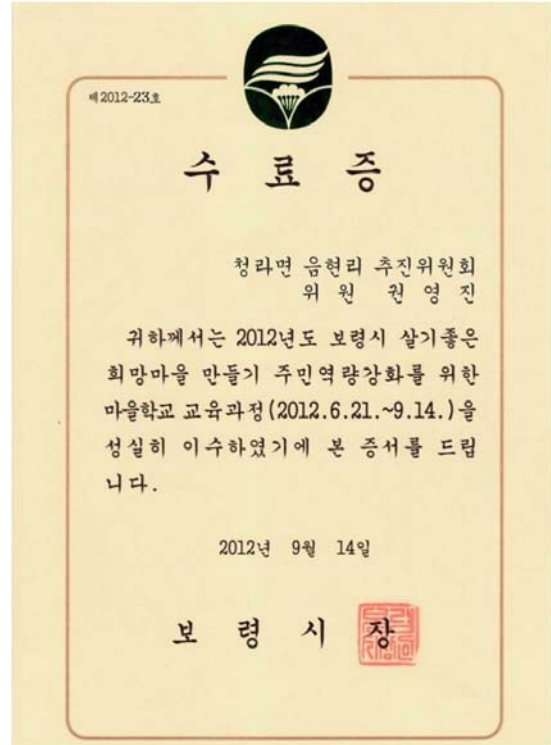 제2012-23호
수 료 증
청라면 음현리 추진위원회
위 원 권 영 진
귀하께서는 2012년도 보령시 살기좋은
희망마을 만들기 주민역량강화를 위한
마을학교 교육과정(2012.6.21.~9.14.)을
성실히 이수하였기에 본 증서를 드립
니다.
2012년 9월 14일
보 령 시 장